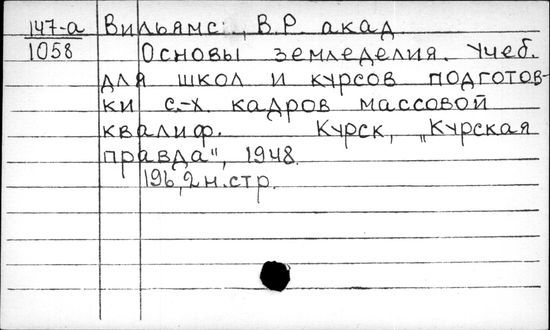 147-а Вильямс, В.Р. акад.
1058 Основы земледелия. Учеб.
для школ и курсов подготов-
ки с.-х кадров массовой
квалиф. Курск, „Курская
правда", 1948.
196, 2 н. стр.